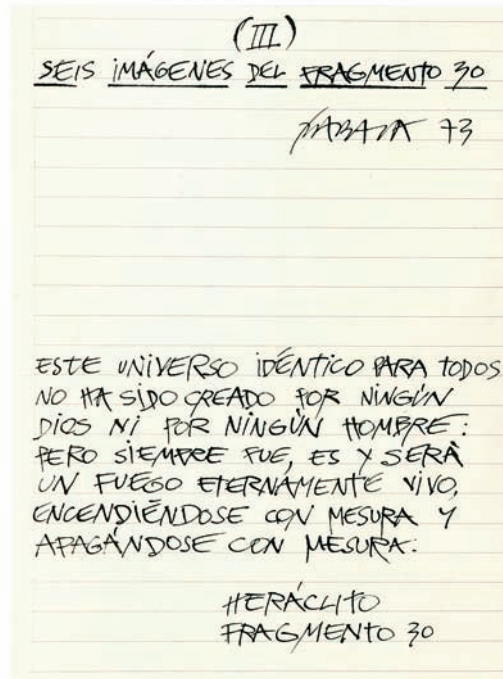 (III)
SEIS IMÁGENES DEL FRAGMENTO 30
ZABALA 73
ESTE UNIVERSO IDÉNTICO PARA TODOS
NO HA SIDO CREADO POR NINGÚN
DIOS NI POR NINGÚN HOMBRE:
PERO SIEMPRE FUE, ES Y SERÀ
UN FUEGO ETERNAMENTE VIVO,
ENCENDIÉNDOSE CON MESURA Y
APAGÁNDOSE CON MESURA.
HERÁCLITO
FRAGMENTO 30